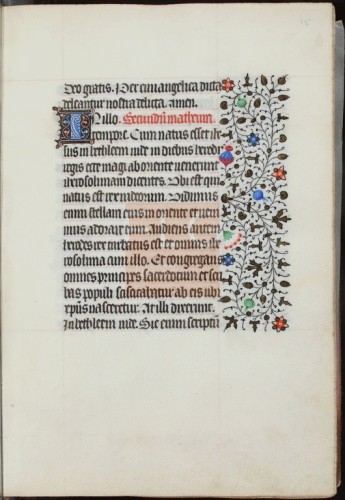 Deo gratis. Per euangelica dicta
deleantur nostra delicta. amen.
In illo. Secundum matheum.
tempore. Cum natus esset ie
sus in bethleem iude in diebus herodis
regis ecce magi ab oriente uenerunt
iherosolimam dicentes. Ubi est qui
natus est rex iudeorum. Vidimus
enim stellam eius in oriente et ueni
mus adorare eum. Audiens autem
herodes rex turbatus est et omnis ihe
rosolima cum illo. Et congregans
omnes principes sacerdotum et scri
bas populi sciscitabatur ab eis ubi
xpistus nasceretur. At illi dixerunt.
In bethleem iude. Sic enim scriptum